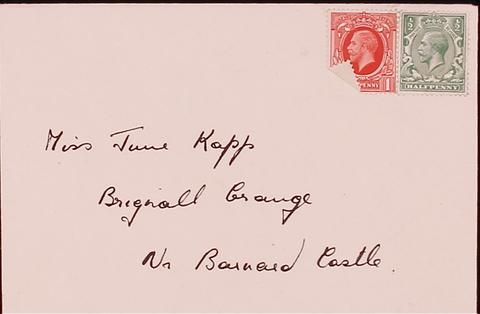 1
PENNY
½ ½
HALFPENNY
Miss June Kapp
Brignall Grange
Nr Barnard Castle.